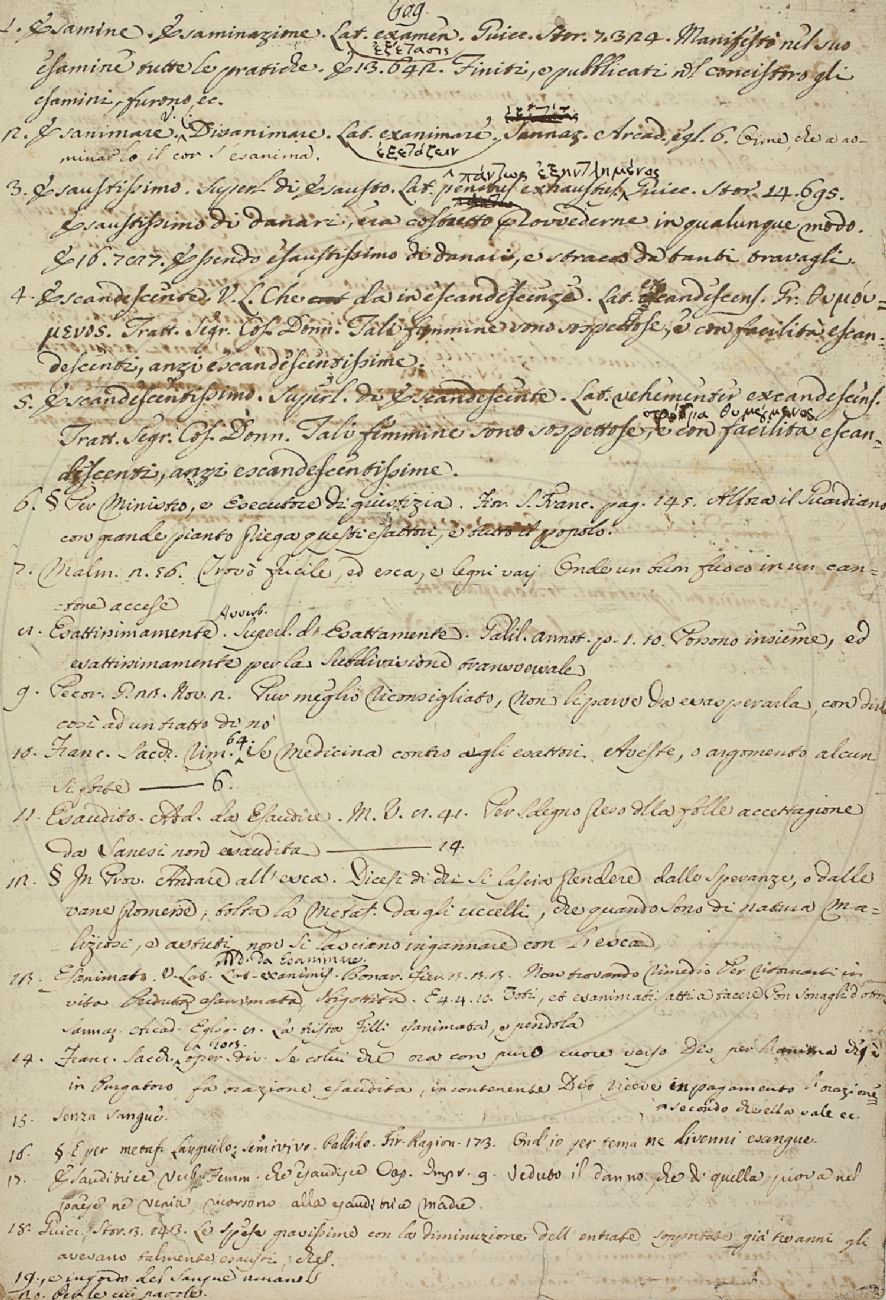 609.
1. Esamine. Esaminazione. Lat. examen. Guicc. Stor. 7.324. Manifestò nel suo
ἐξέτασις
esamine tutte le pratiche. E 13.642. Finiti, e pubblicati nel concistoro gli
esamini, furono, ec.
2. Esanimare. Disanimare. Lat. exanimare. Sannaz. Arcad. egl. 6. Crime, che a no-
ἐξετάζειν
minarlo il cor s'esanima.
πάντως ἐξηντλημένος
3. Esaustissimo. Superl. di Esausto. Lat. penitus exhaustus. Guicc. Stor. 14.695.
Esaustissimo di danari, era costretto provvederne in qualunque modo.
E 16. Essendo esaustissimo di danari, e stracco da tanti travagli.
4. Escandescente. V. L. Che dà in escandescenze. Lat. excandescens. Gr. θυμού=
μενος. Tratt. Segr. Cos. Donn. Tali femmine sono sospettose, e con facilità escan=
descenti, anzi escandescentissime.
5. Escandescentissimo. Superl. di Escandescente. Lat. vehementer excandescens.
σφόδρα θυμούμενος
Tratt. Segr. Cos. Donn. Tali femmine sono sospettose, e con facilità escan=
descenti, anzi escandescentissime.
6. § Per Ministro, e Esecutore di giustizia. Fior. S. Franc. pag. 145. Allora il Picardiano
con grande pianto priega questi esattori, e tutto il popolo.
7. Malm. 2.56. Trovò fucile, ed esca, e legni varj Onde un buon fuoco in un can=
=tone accese
Avverb.
8. Esattissimamente. Superl. di Esattamente. Galil. annot. p. 1. 10. Possono insieme, ed
esattissimamente per la Subdivisione transversale
9. Pecor. G. 22. Nov. 2. Pur meglio riconsigliato, non li parve da exasperarla, con dirle
così ad un tratto di nò
10. Franc. Sacch. rim. 64. Se Medicina contro agli esattori Aveste, o argomento alcun
si forte —— 6.
11. Esaudito. Add. da Esaudire. M. V. 8. 41. Per sdegno preso della folle accettagione
da Sanesi non esaudita —— 14.
12. § In Prov. Andare all'esca. Dicesi di chi si lascia prendere dalle Speranze, o dalle
vane promesse; tolta la Metaf. dagli uccelli, che quando sono di natura Ma=
liziosi, e astuti, non si lasciano ingannare con l'esca
Add. da Esanimare.
13. Esanimato. V. Lat. Lat. exanimis. Buonar. Fier. 3. 3. Non trovando rimedio Per ritornarti in
vita Perduta esanimata, sbigottita. E 4. 4. 10. Voti, et esanimati atti a tacere Con sonagli d'otton
Sannaz. Arcad. Eglog. 8. La trista Filli esanimata, e pendola
14. Franc. Sacch. oper. div. Se colui che ora con puro cuore verso Dio, per l'anima ch'è
in Purgatoro, fa orazione esaudita, incontenente Dio riceve in pagamento l'orazione
a secondo ch'ella vale ec.
15. Senza sangue.
16. § E per metaf. Languido; semivivo. Ballilo. Fir. Ragion. 173. Ond'io per tema ne divenni esangue.
17. Esauditrice Verb. Femm. che esaudisce Cap. Impr. 9. Veduto il danno, che di quella piova nel
paese ne venia ricorsono alla esauditrice Madre.
18. Guicc. Stor. Le spese gravissime con la diminuzione dell'entrate sopportate già tre anni gli
avevano talmente esausti, chel.
19., e ingordo del Sangue umano
20. Per le cui parole.